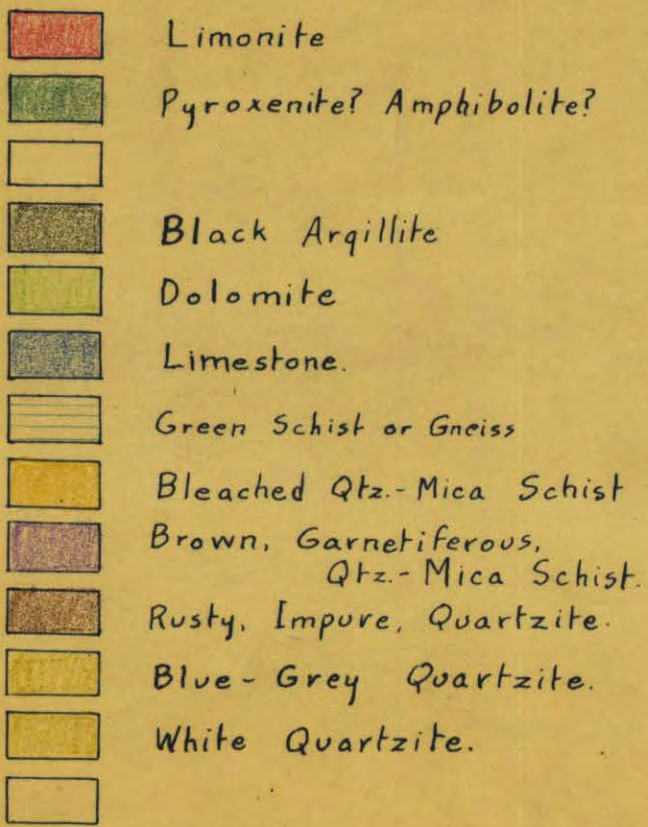 Limonite
Pyroxenite? Amphibolite?
Black Argillite
Dolomite
Limestone.
Green Schist or Gneiss
Bleached Qtz.-Mica Schist
Brown, Garnetiferous,
Qtz.-Mica Schist.
Rusty, Impure, Quartzite.
Blue-Grey Quartzite.
White Quartzite.